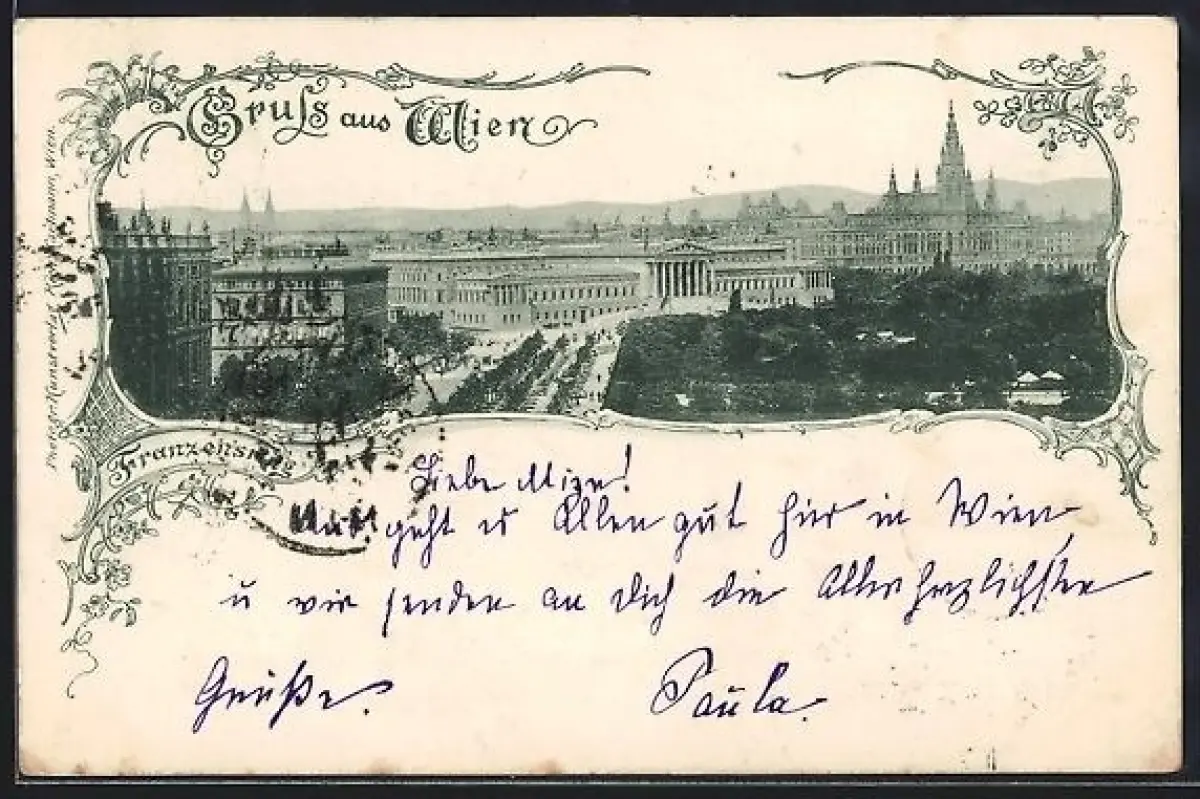 Gruss aus Wien
Franzensring
Liebe Mizn!
geht es Allen gut hier in Wien
u wir senden an Dich die Allerherzlichsten
Grüße. Paula.